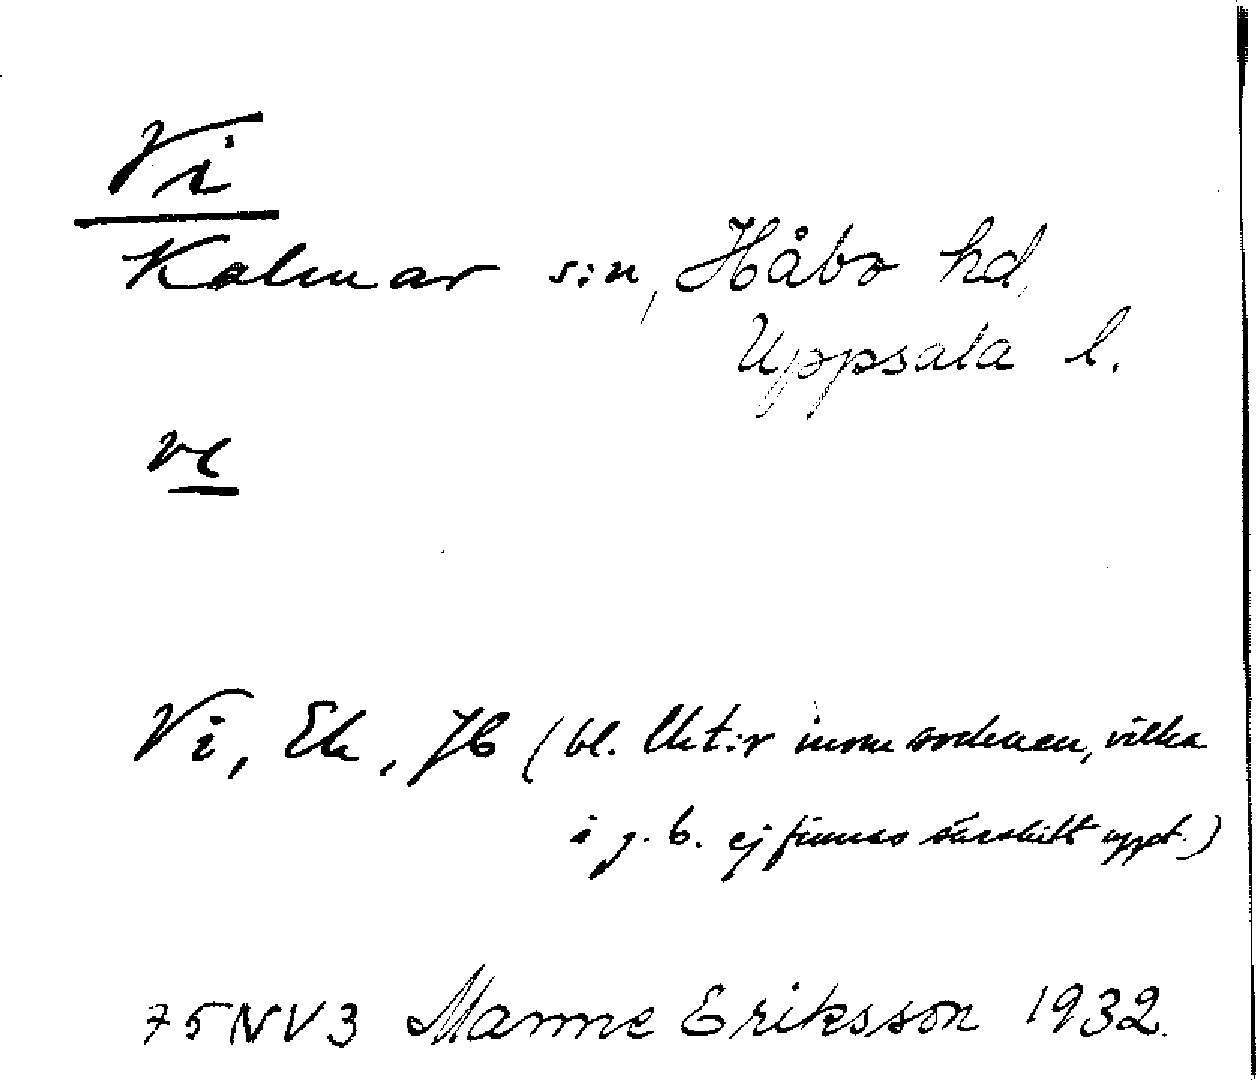 Vi
Kalmar s:n, Håbo hd,
Uppsala l.
ve
Vi, Ek, JB (bl. Utt:r inom socknen, vilka
i j. b. ej finnas särskilt uppt.)
75NV3 Manne Eriksson 1932.